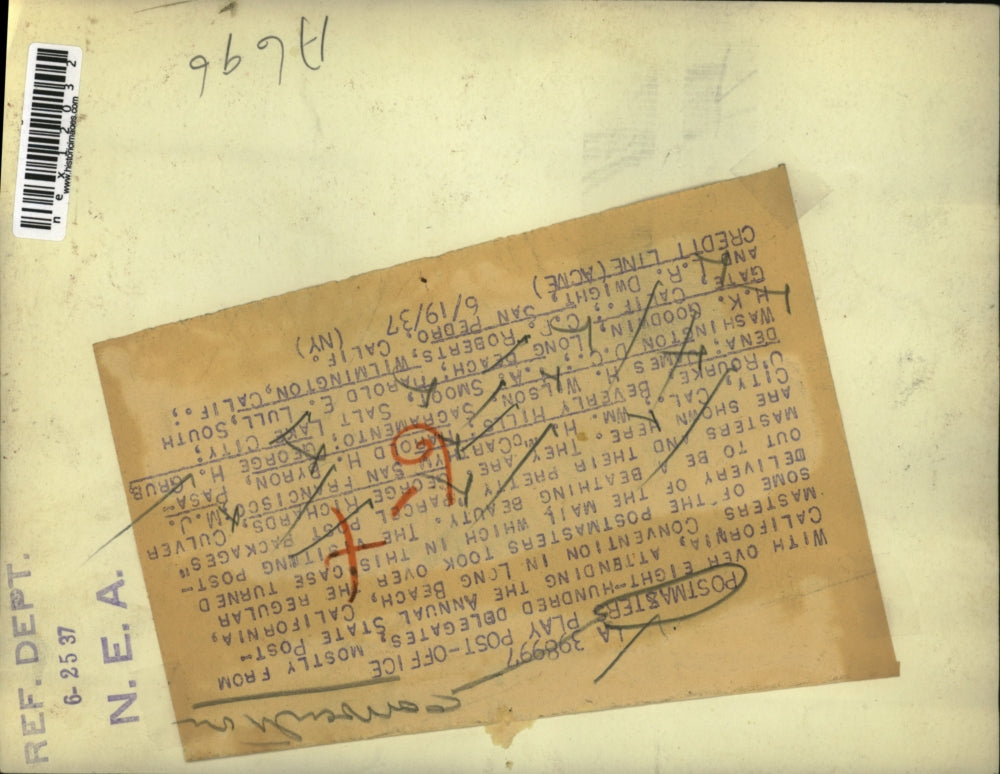 A696
nex1 2032
www.historicimages.com
REF. DEPT.
6-25 37
N. E. A.
convention
LA 398997
POSTMASTERS PLAY POST-OFFICE
WITH OVER EIGHT-HUNDRED DELEGATES, MOSTLY FROM
CALIFORNIA, ATTENDING THE ANNUAL STATE POST-
MASTERS CONVENTION IN LONG BEACH, CALIFORNIA,
SOME OF THE POSTMASTERS TOOK OVER THE REGULAR
DELIVERY OF THE MAIL WHICH IN THIS CASE TURNED
OUT TO BE A BEATHING BEAUTY. THE VISITING POST-
MASTERS AND THEIR PRETTY PARCEL POST PACKAGES"
ARE SHOWN HERE. THEY ARE GEORGE RICHARDS, CULVER
CITY, CAL. WM. H. McCARTHY SAN FRANCISCO, M.J.
O'ROURKE, BEVERLY HILLS, HAROLD H. BYRON, PASA-
DENA, JAMES H. WILSON, SACRAMENTO; GEORGE H. GRUB
WASHINGTON D.C., A. SMOOT, SALT LAKE CITY;
H.K. GOODWIN, LONG BEACH, HAROLD E. LULL, SOUTH
GATE, CALIF., C.F. ROBERTS, WILMINGTON, CALIF.,
AND L.R. DWIGHT, SAN PEDRO, CALIF.
CREDIT LINE (ACME) 6/19/37 (NY)